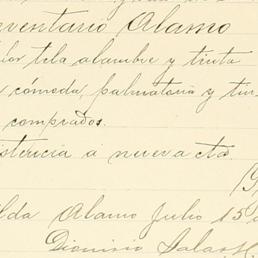 nventario Alamo
lor tela alambre y tinta
cómoda, palmatoria y tin
comprados.
istencia a nueva cta
lda Alamo Julio 15
Dionisio Salas